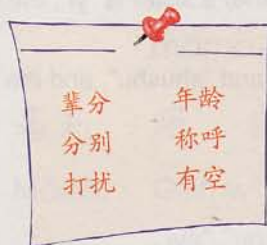 辈分 年龄
分别 称呼
打扰 有空